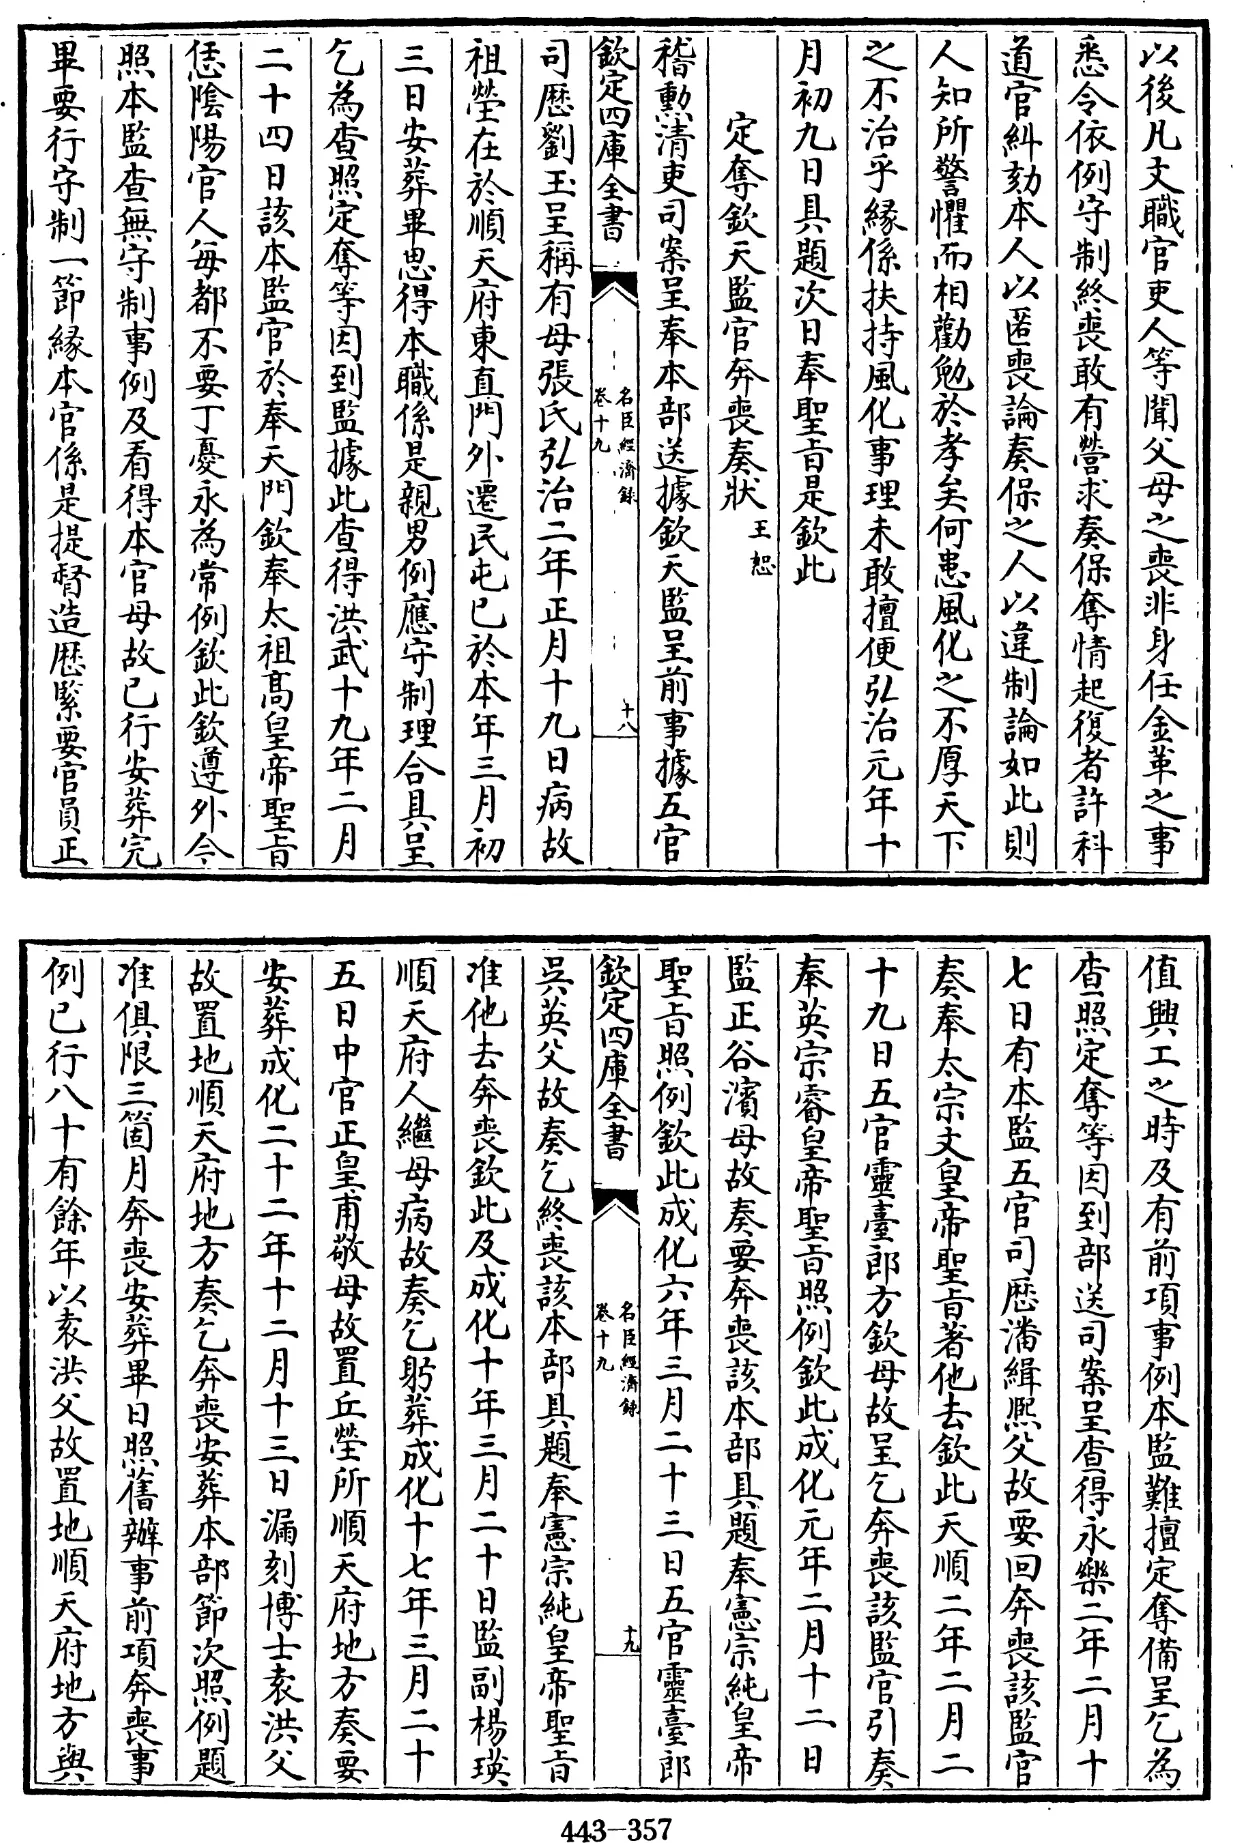 以後凡文職官吏人等聞父母之喪非身任金革之事
悉令依例守制終喪敢有營求奏保奪情起復者許科
道官糾劾本人以匿喪論奏保之人以違制論如此則
人知所警懼而相勸勉於孝矣何患風化之不厚天下
之不治乎緣係扶持風化事理未敢擅便弘治元年十
月初九日具題次日奉聖旨是欽此
定奪欽天監官奔喪奏狀　王恕
稽勲清吏司案呈奉本部送據欽天監呈前事據五官
欽定四庫全書　名臣經濟錄　卷十九　十八
司歷劉玉呈稱有母張氏弘治二年正月十九日病故
祖塋在於順天府東直門外遷民屯已於本年三月初
三日安葬畢思得本職係是親男例應守制理合具呈
乞為查照定奪等因到監據此查得洪武十九年二月
二十四日該本監官於奉天門欽奉太祖高皇帝聖旨
恁陰陽官人每都不要丁憂永為常例欽此欽遵外今
照本監查無守制事例及看得本官母故已行安葬完
畢要行守制一節緣本官係是提督造歷緊要官員正
值興工之時及有前項事例本監難擅定奪備呈乞為
查照定奪等因到部送司案呈查得永樂二年二月十
七日有本監五官司歷潘緝熈父故要回奔喪該監官
奏奉太宗文皇帝聖旨著他去欽此天順二年二月二
十九日五官靈臺郎方欽母故呈乞奔喪該監官引奏
奉英宗睿皇帝聖旨照例欽此成化元年二月十二日
監正谷濱母故奏要奔喪該本部具題奉憲宗純皇帝
聖旨照例欽此成化六年三月二十三日五官靈臺郎
欽定四庫全書　名臣經濟錄　卷十九　十九
吳英父故奏乞終喪該本部具題奉憲宗純皇帝聖旨
准他去奔喪欽此及成化十年三月二十日監副楊瑛
順天府人繼母病故奏乞躬葬成化十七年三月二十
五日中官正皇甫敬母故置丘塋所順天府地方奏要
安葬成化二十二年十二月十三日漏刻博士袁洪父
故置地順天府地方奏乞奔喪安葬本部節次照例題
准俱限三箇月奔喪安葬畢日照舊辦事前項奔喪事
例已行八十有餘年以袁洪父故置地順天府地方與
443—357